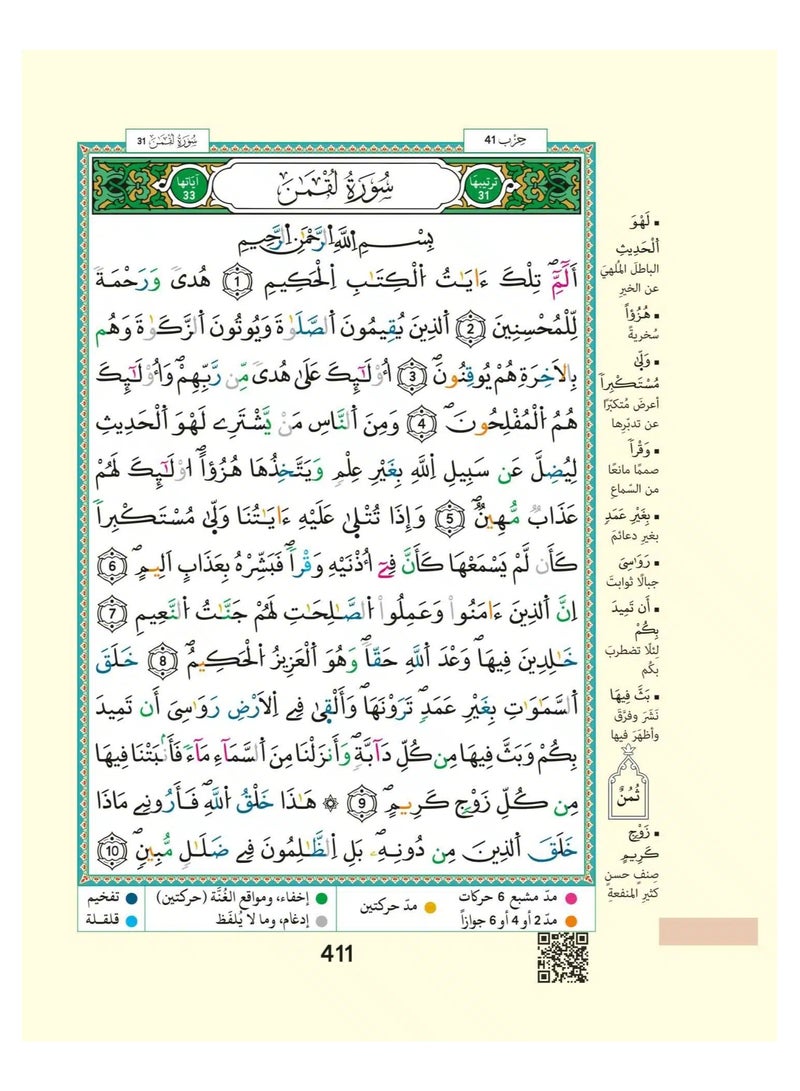 حِزْب 41
سُورَةُ لُقْمَٰنَ 31
ترتيبها 31
سُورَةُ لُقْمَٰنَ
آيَاتها 33
بِسْمِ اِ۬للَّهِ اِ۬لرَّحْمَٰنِ اِ۬لرَّحِيمِ
أَلَٓمِّٓۖ تِلْكَ ءَايَٰتُ اُ۬لْكِتَٰبِ اِ۬لْحَكِيمِ 1 هُدىٗ وَرَحْمَةٗ
لِّلْمُحْسِنِينَ 2 اَ۬لذِينَ يُقِيمُونَ اَ۬لصَّلَوٰةَ وَيُوتُونَ اَ۬لزَّكَوٰةَ وَهُم
بِالَاخِرَةِ هُمْ يُوقِنُونَۖ 3 أُوْلَٰٓئِكَ عَلَىٰ هُدىٗ مِّن رَّبِّهِمْۖ وَأُوْلَٰٓئِكَ
هُمُ اُ۬لْمُفْلِحُونَۖ 4 وَمِنَ اَ۬لنَّاسِ مَنْ يَّشْتَرِے لَهْوَ اَ۬لْحَدِيثِ
لِيُضِلَّ عَن سَبِيلِ اِ۬للَّهِ بِغَيْرِ عِلْمٖ وَيَتَّخِذُهَا هُزُؤاًۖ ا۟وْلَٰٓئِكَ لَهُمْ
عَذَابٞ مُّهِينٞۖ 5 وَإِذَا تُتْلَىٰ عَلَيْهِ ءَايَٰتُنَا وَلَّىٰ مُسْتَكْبِراٗ
كَأَن لَّمْ يَسْمَعْهَا كَأَنَّ فِےٓ أُذْنَيْهِ وَقْراٗۖ فَبَشِّرْهُ بِعَذَابٍ اَلِيمٍۖ 6
اِنَّ اَ۬لذِينَ ءَامَنُواْ وَعَمِلُواْ اُ۬لصَّٰلِحَٰتِ لَهُمْ جَنَّٰتُ اُ۬لنَّعِيمِ 7
خَٰلِدِينَ فِيهَا وَعْدَ اَ۬للَّهِ حَقّاٗۖ وَهُوَ اَ۬لْعَزِيزُ اُ۬لْحَكِيمُۖ 8 خَلَقَ
اَ۬لسَّمَٰوَٰتِ بِغَيْرِ عَمَدٖ تَرَوْنَهَاۖ وَأَلْقَىٰ فِے اِ۬لَارْضِ رَوَٰسِيَ أَن تَمِيدَ
بِكُمْ وَبَثَّ فِيهَا مِن كُلِّ دَآبَّةٖۖ وَأَنزَلْنَا مِنَ اَ۬لسَّمَآءِ مَآءٗ فَأَنۢبَتْنَا فِيهَا
مِن كُلِّ زَوْجٖ كَرِيمٍۖ 9 ۞ هَٰذَا خَلْقُ اُ۬للَّهِۖ فَأَرُونِے مَاذَا
خَلَقَ اَ۬لذِينَ مِن دُونِهِۦۖ بَلِ اِ۬لظَّٰلِمُونَ فِے ضَلَٰلٖ مُّبِينٖۖ 10
▪ لَهْوَ
اَ۬لْحَدِيثِ
الباطلَ المُلهِيَ
عن الخيرِ
▪ هُزُؤاً
سُخريةً
▪ وَلَّىٰ
مُسْتَكْبِراٗ
أعرضَ مُتكبّرًا
عن تدبّرِها
▪ وَقْراٗ
صممًا مانعًا
من السّماعِ
▪ بِغَيْرِ عَمَدٖ
بغيرِ دعائمَ
▪ رَوَٰسِيَ
جبالًا ثوابتَ
▪ أَن تَمِيدَ
بِكُمْ
لِئلّا تضطربَ
بكُم
▪ بَثَّ فِيهَا
نَشَرَ وفرّقَ
وأظهَرَ فيها
ثُمُنٌ
▪ زَوْجٖ
كَرِيمٍ
صِنفٍ حسنٍ
كثيرِ المنفعةِ
مدّ مشبع 6 حركات
مدّ 2 أو 4 أو 6 جوازاً
مدّ حركتين
إخفاء، ومواقع الغُنَّة (حركتين)
إدغام، وما لا يُلفَظ
تفخيم
قلقـلة
411